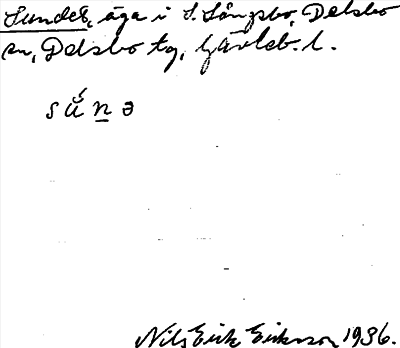 Sundet, äga i S. Långsbo, Delsbo
sn, Delsbo tg, Gävleb. l.
sú̈n̲ə
Nils Erik Eriksson 1936.